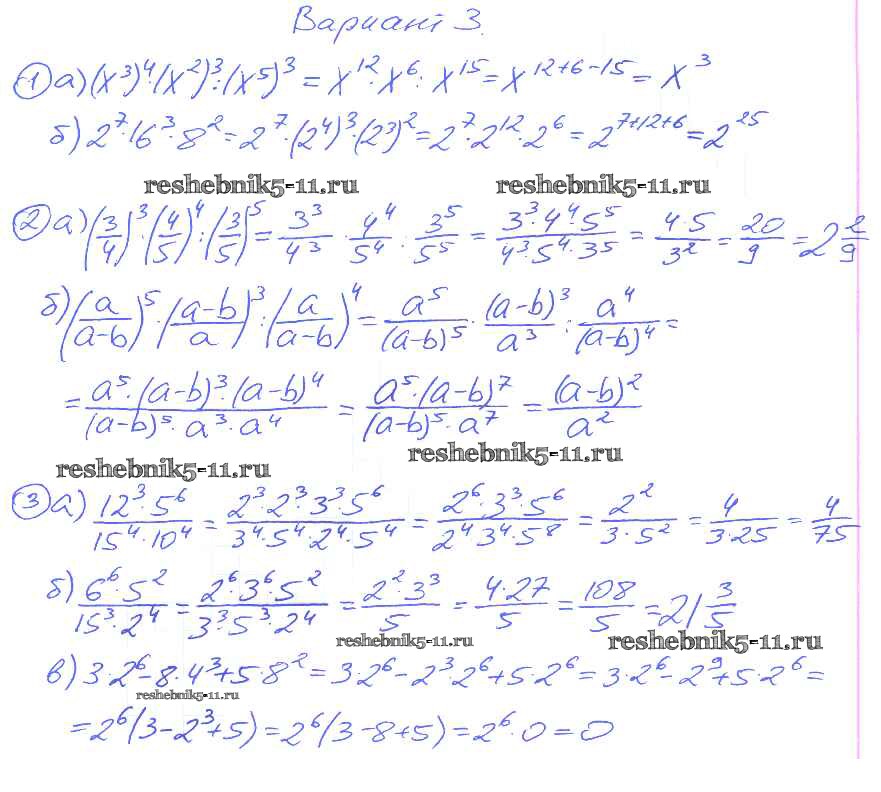 Вариант 3.
1 а) (x³)⁴·(x²)³:(x⁵)³ = x¹²·x⁶:x¹⁵ = x¹²⁺⁶⁻¹⁵ = x³
б) 2⁷·16³·8² = 2⁷·(2⁴)³·(2³)² = 2⁷·2¹²·2⁶ = 2⁷⁺¹²⁺⁶ = 2²⁵
reshebnik5-11.ru reshebnik5-11.ru
2 а) (3/4)³·(4/5)⁴:(3/5)⁵ = 3³/4³ · 4⁴/5⁴ · 3⁵/5⁵ = 3³·4⁴·5⁵/4³·5⁴·3⁵ = 4·5/3² = 20/9 = 2 2/9
б) (a/(a-b))⁵·((a-b)/a)³:(a/(a-b))⁴ = a⁵/(a-b)⁵ · (a-b)³/a³ : a⁴/(a-b)⁴ =
= a⁵·(a-b)³·(a-b)⁴/(a-b)⁵·a³·a⁴ = a⁵·(a-b)⁷/(a-b)⁵·a⁷ = (a-b)²/a²
reshebnik5-11.ru reshebnik5-11.ru
3 а) 12³·5⁶/15⁴·10⁴ = 2³·2³·3³·5⁶/3⁴·5⁴·2⁴·5⁴ = 2⁶·3³·5⁶/2⁴·3⁴·5⁸ = 2²/3·5² = 4/3·25 = 4/75
б) 6⁶·5²/15³·2⁴ = 2⁶·3⁶·5²/3³·5³·2⁴ = 2²·3³/5 = 4·27/5 = 108/5 = 21 3/5
reshebnik5-11.ru reshebnik5-11.ru
в) 3·2⁶-8·4³+5·8² = 3·2⁶-2³·2⁶+5·2⁶ = 3·2⁶-2⁹+5·2⁶ =
reshebnik5-11.ru
= 2⁶(3-2³+5) = 2⁶(3-8+5) = 2⁶·0 = 0